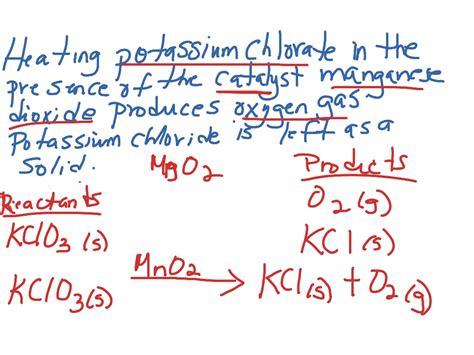 Heating potassium chlorate in the
presence of the catalyst manganese
dioxide produces oxygen gas
Potassium chloride is left as a
Solid.
MgO2
Products
Reactants
O2(g)
KClO3(s)
KCl(s)
KClO3(s) MnO2 → KCl(s) + O2(g)